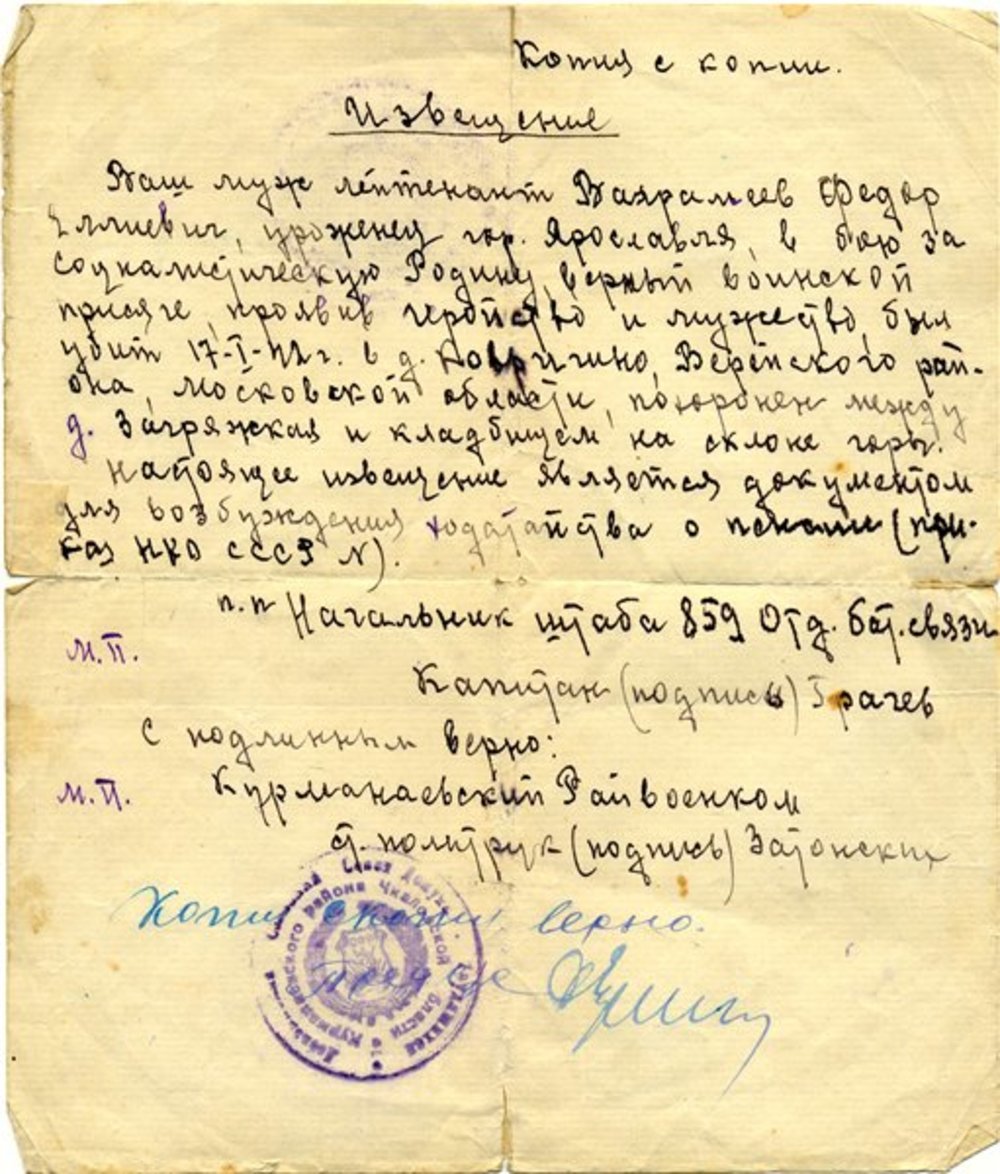 Копия с копии.
Извещение
Ваш муж лейтенант Вахрамеев Федор
Еллиевич, уроженец гор. Ярославля, в бою за
социалистическую Родину, верный воинской
присяге, проявив геройство и мужество, был
убит 17-I-42 г. в д. Ковригино, Верейского рай-
она, Московской области, похоронен между
д. Загряжская и кладбищем на склоне горы.
Настоящее извещение является документом
для возбуждения ходатайства о пенсии (при-
каз НКО СССР N).
п.п Начальник штаба 859 Отд. бат. связи
М.П.
Капитан (подпись) Грачев
С подлинным верно:
М.П. Курманаевский Райвоенком
ст. политрук (подпись) Затонских
Копия с копии верно.
Курманаевского района Чкаловской области